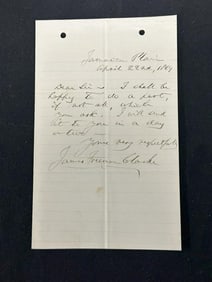 Jamaica Plain
April 22nd, 1869
Dear Sir - I shall be
happy to do a part,
if not all, which
you ask. I will send
it to you in a day
or two -
Yours very respectfully
James Freeman Clarke